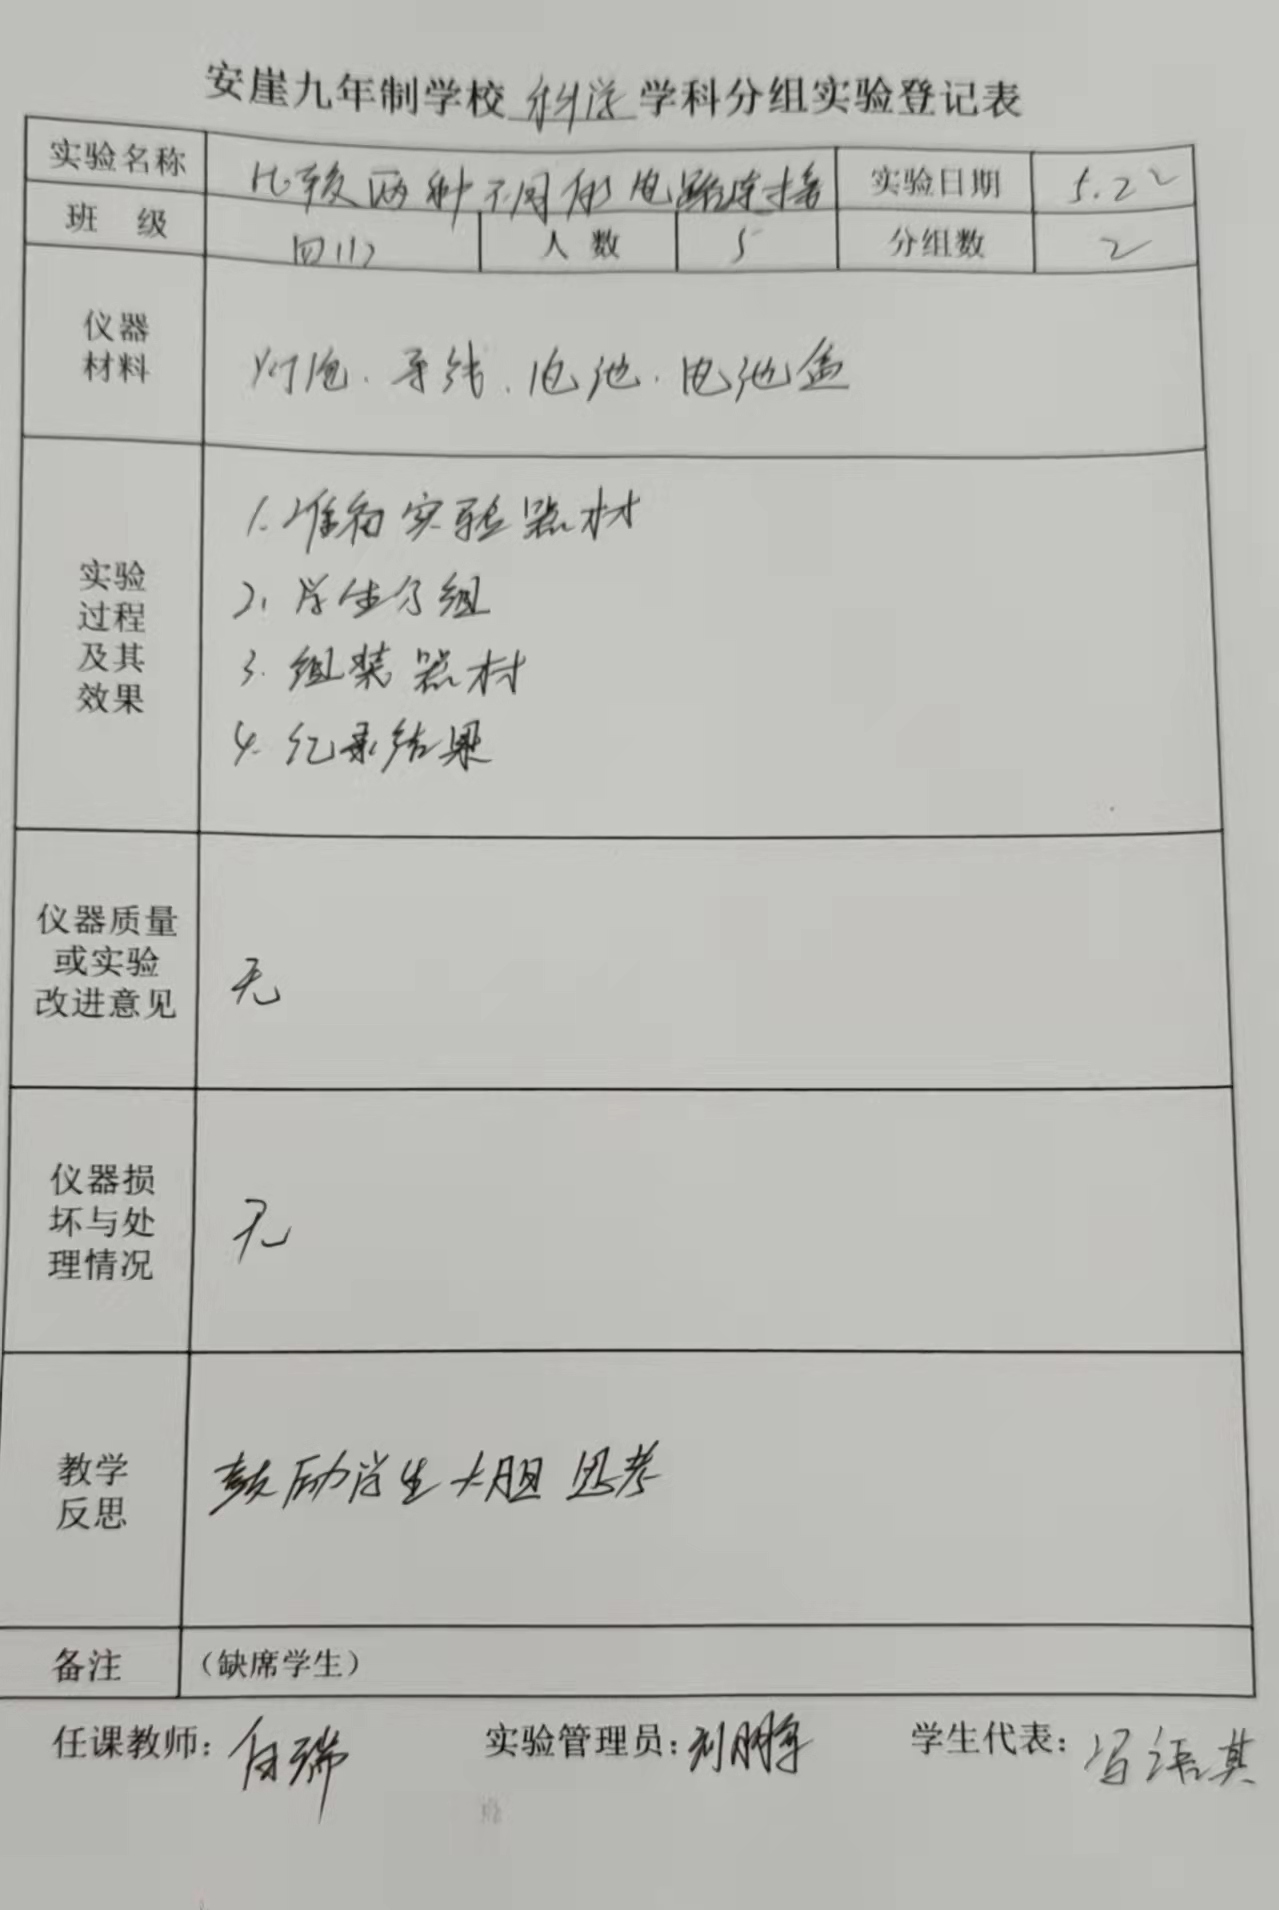 安崖九年制学校 科学 学科分组实验登记表
实验名称 比较两种不同的电路连接 实验日期 5.22
班 级 四(1) 人 数 5 分组数 2
仪器
材料
灯泡、导线、电池、电池盒
实验
过程
及其
效果
1. 准备实验器材
2. 学生分组
3. 组装器材
4. 纪录结果
仪器质量
或实验
改进意见
无
仪器损
坏与处
理情况
无
教学
反思
鼓励学生大胆思考
备注 (缺席学生)
任课教师: 任瑞 实验管理员: 刘鹏 学生代表: 语其